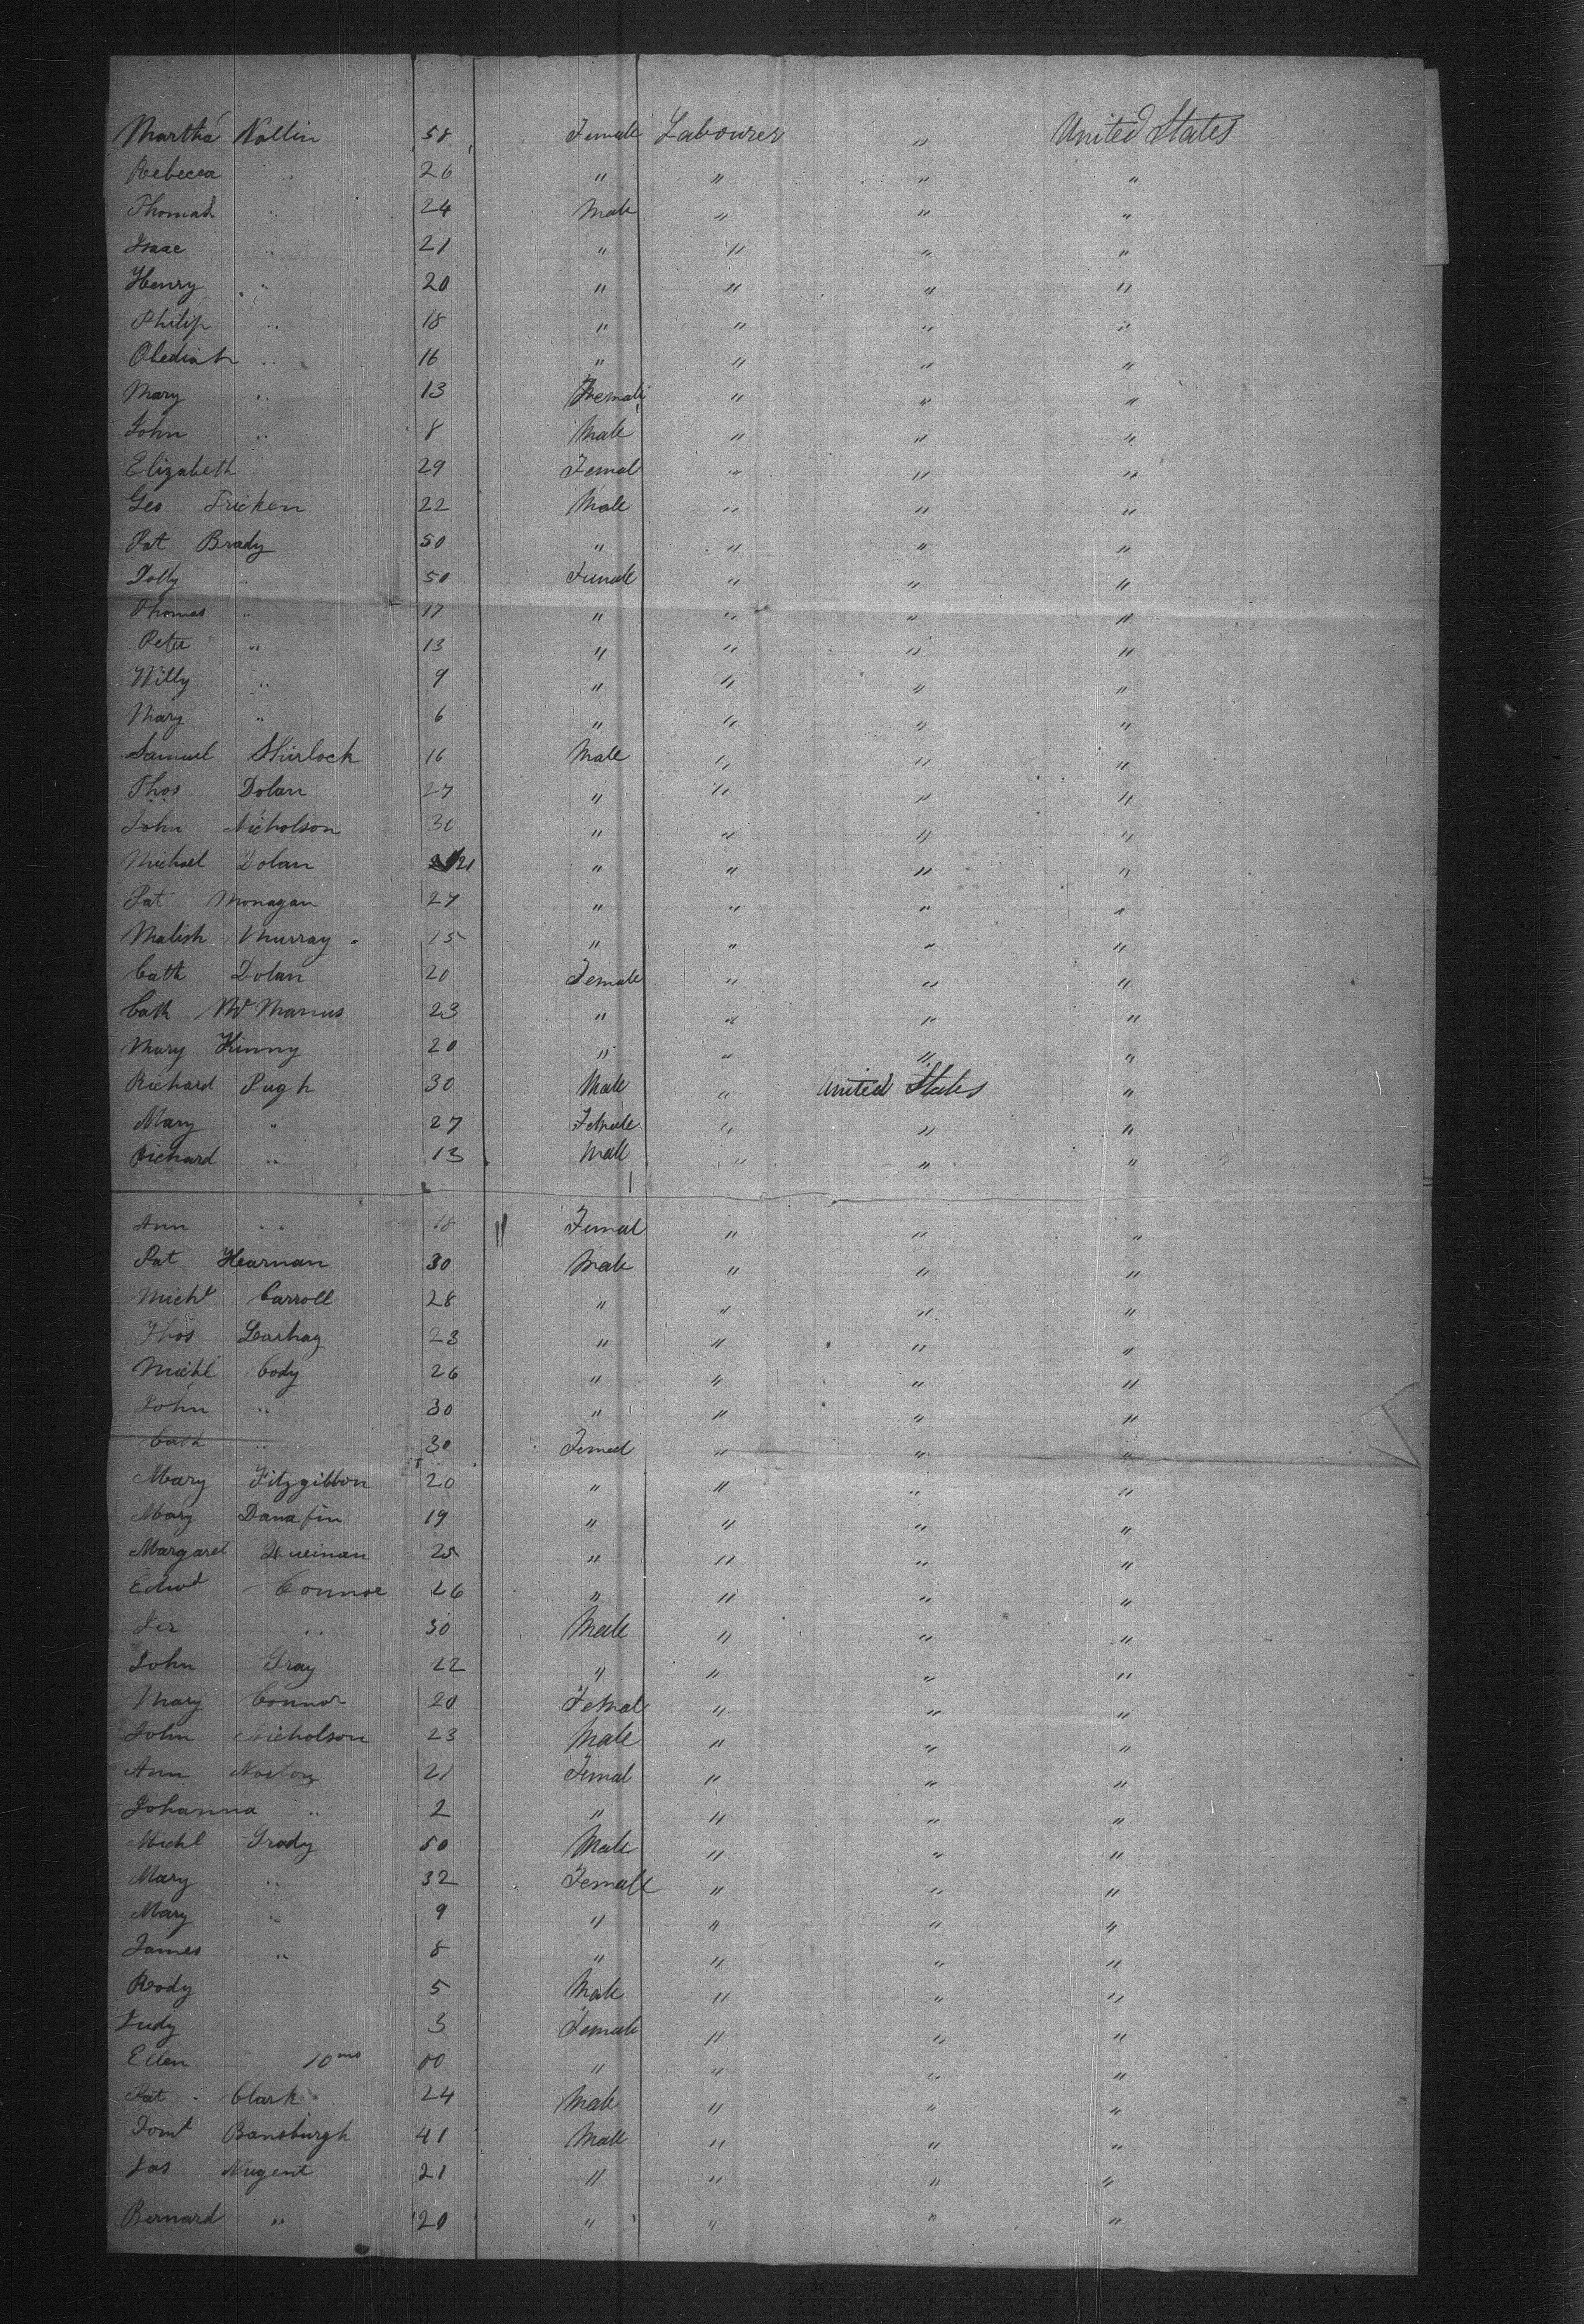 Martha Nollin 58 Female Labourer " United States
Rebecca " 26 " " " "
Thomas " 24 Male " " "
Isaac " 21 " " " "
Henry " 20 " " " "
Philip " 18 " " " "
Obediah " 16 " " " "
Mary " 13 Female " " "
John " 8 Male " " "
Elizabeth 29 Femal " " "
Geo Tricken 22 Male " " "
Pat Brady 50 " " " "
Dolly " 50 Female " " "
Thomas " 17 " " " "
Peter " 13 " " " "
Willy " 9 " " " "
Mary " 6 " " " "
Samuel Shirlock 16 Male " " "
Thos Dolan 27 " " " "
John Nicholson 30 " " " "
Michael Dolan 21 " " " "
Pat Monagan 27 " " " "
Malish Murray 25 " " " "
Cath Dolan 20 Female " " "
Cath McManus 23 " " " "
Mary Kinny 20 " " " "
Richard Pugh 30 Male " United States "
Mary " 27 Female " " "
Richard " 13 Male " " "
Ann " 18 Femal " " "
Pat Hearnan 30 Male " " "
Michl Carroll 28 " " " "
Thos 23 " " " "
Michl Cody 26 " " " "
John " 30 " " " "
Cath " 30 Femal " " "
Mary Fitzgibbon 20 " " " "
Mary Danafin 19 " " " "
Margaret 25 " " " "
Edwd Connor 26 " " " "
Jer " 30 Male " " "
John Gray 22 " " " "
Mary Connor 20 Femal " " "
John Nicholson 23 Male " " "
Ann Norton 21 Femal " " "
Johanna " 2 " " " "
Michl Grady 50 Male " " "
Mary " 32 Female " " "
Mary " 9 " " " "
James " 8 " " " "
Rody 5 Male " " "
Judy 3 Female " " "
Ellen 10 mos 00 " " " "
Pat Clark 24 Male " " "
Bansburgh 41 Male " " "
Jas Nugent 21 " " " "
Bernard " 20 " " " "